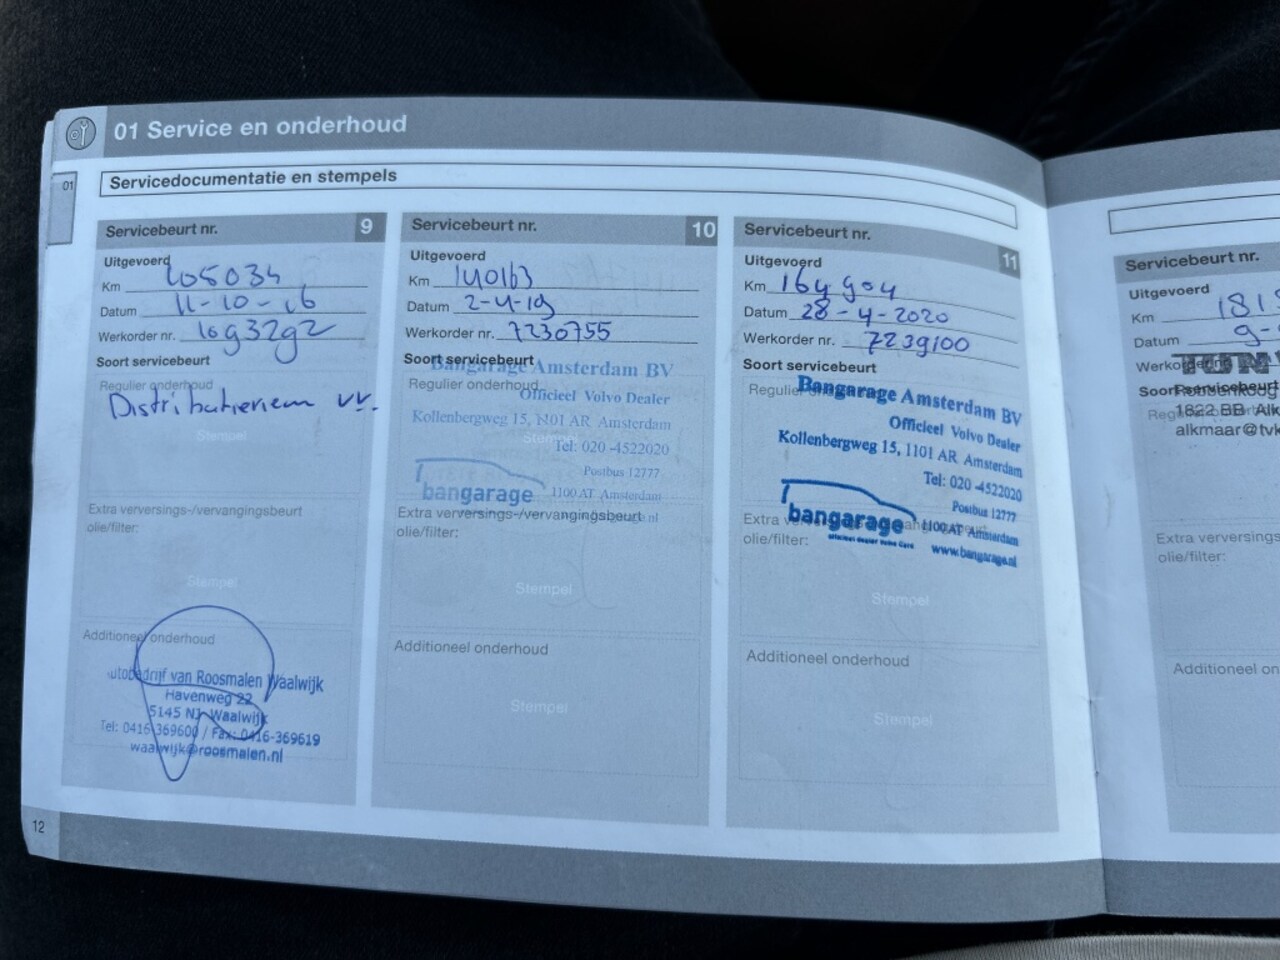 01 Service en onderhoud
01
Servicedocumentatie en stempels
Servicebeurt nr. 9
Uitgevoerd
Km 105034
Datum 11-10-16
Werkorder nr. 1093292
Soort servicebeurt
Regulier onderhoud
Distributieriem vv.
Stempel
Extra verversings-/vervangingsbeurt
olie/filter:
Stempel
Additioneel onderhoud
utobedrijf van Roosmalen Waalwijk
Havenweg 22
5145 NJ Waalwijk
Tel: 0416-369600 / Fax: 0416-369619
waalwijk@roosmalen.nl
12
Servicebeurt nr. 10
Uitgevoerd
Km 140163
Datum 2-4-19
Werkorder nr. 7230755
Soort servicebeurt
Bangarage Amsterdam BV
Regulier onderhoud
Officieel Volvo Dealer
Kollenbergweg 15, 1101 AR Amsterdam
Stempel
Tel: 020 -4522020
Postbus 12777
bangarage 1100 AT Amsterdam
Extra verversings-/vervangingsbeurt
olie/filter:
Stempel
Additioneel onderhoud
Stempel
Servicebeurt nr. 11
Uitgevoerd
Km 164904
Datum 28-4-2020
Werkorder nr. 7239100
Soort servicebeurt
Regulier
Bangarage Amsterdam BV
Officieel Volvo Dealer
Kollenbergweg 15, 1101 AR Amsterdam
Tel: 020 -4522020
Postbus 12777
bangarage 1100 AT Amsterdam
Extra
olie/filter:
officieel dealer Volvo Cars www.bangarage.nl
Stempel
Additioneel onderhoud
Stempel
Servicebeurt nr.
Uitgevoerd
Km 181
Datum 9-
Soort servicebeurt
1822 BB Alk
alkmaar@tvk
Extra verversings
olie/filter:
Additioneel on